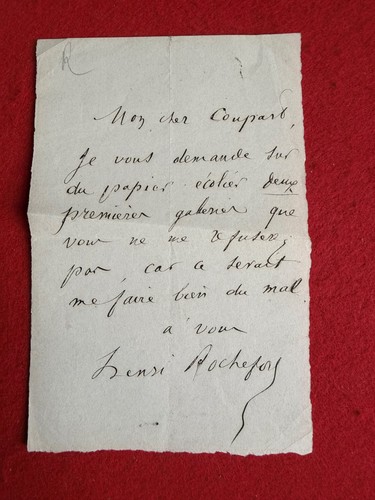 R
Mon cher Coupart,
Je vous demande sur
du papier écolier deux
premières galeries que
vous ne me refuserez
pas, car ce serait
me faire bien du mal
à vous
Henri Rochefort